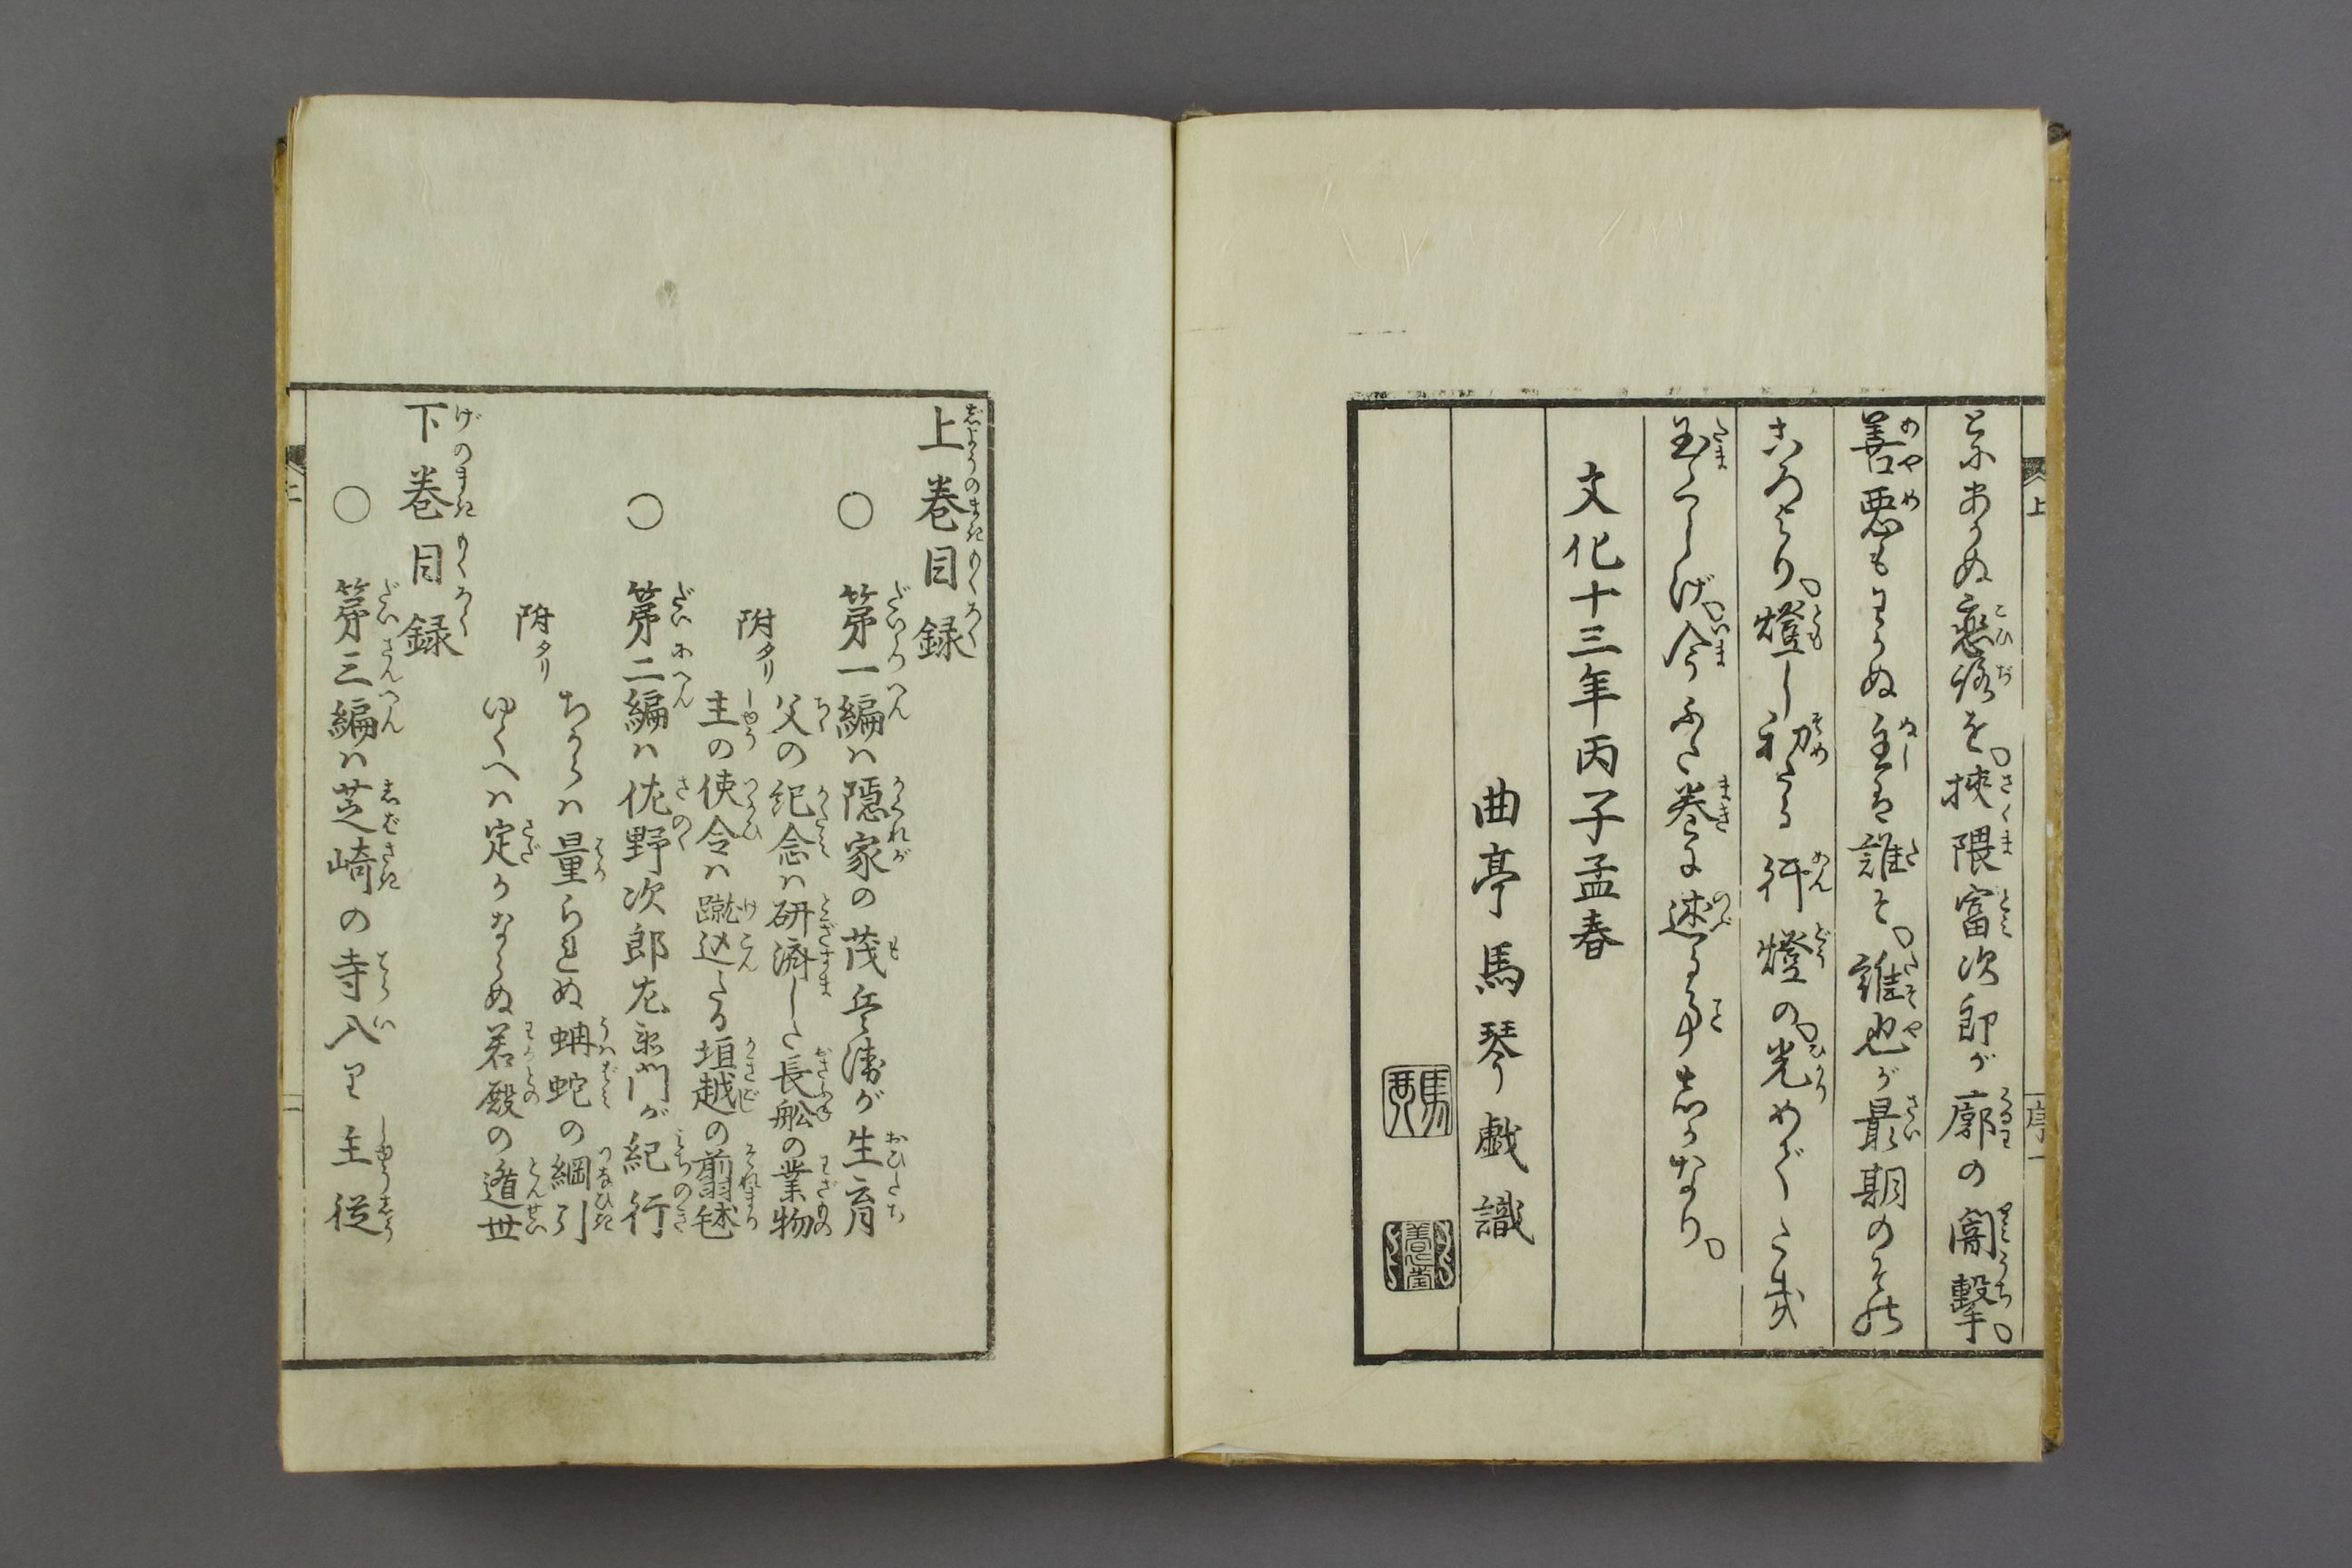 とふあかぬ戀路を。挾隈富次郎が廓の闇撃。
善悪もわかぬ主は誰そ。誰也が最期のそれ
燈し初たる行燈の。光めでたき
玉くしげ。今ふた巻に述る
なり。
文化十三年丙子孟春
曲亭馬琴戯識
上巻目録
○第一編ハ隠家の茂兵衛が生育
父の紀念ハ研済した長舩の業物
附タリ
主の使令ハ蹴込たる垣越の翦毬
○第二編ハ佐野次郎左衛門が紀行
ちからハ量られぬ蚺蛇の綱引
附タリ
ゆくへハ定かならぬ若殿の遁世
下巻目録
○第三編ハ芝崎の寺入り主従